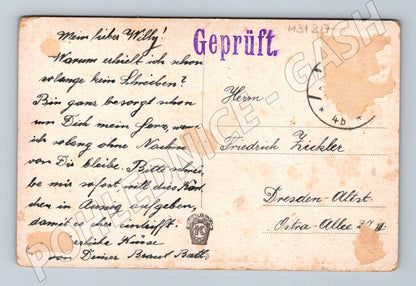 Mein liebs Willy!
Warum erhielt ich schon
solange kein Schreiben?
Bin ganz besorgt schon
um Dich mein Herz, wenn
ich solang ohne Nachr.
von Dir bleibe. Bitte schrei-
be mir sofort, will dies Kärt
chen in Aussig aufgeben,
damit es eher eintrifft.
Herzliche Küsse
von Deiner Braut
Geprüft.
4321/7
Herrn
Friedrich Zickler
Dresden-Altst.
Ostra-Allee 27 III.
* 4b *
K
POHLEDNICE - GASH